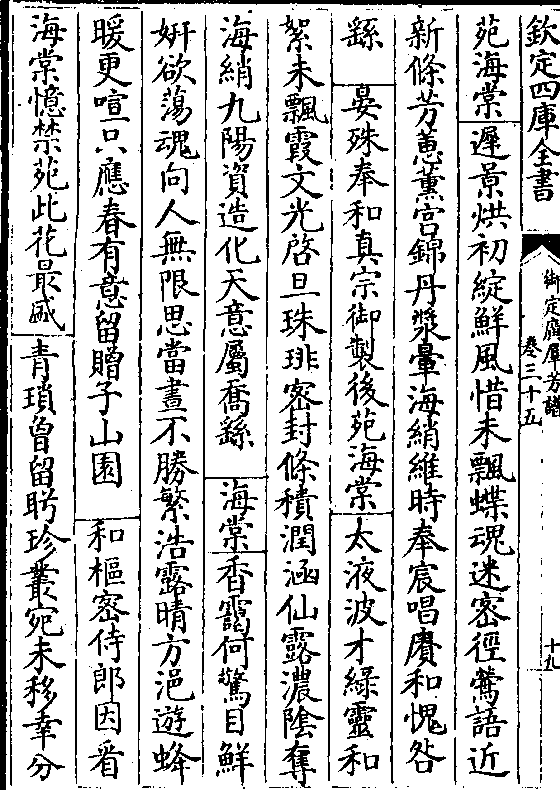 欽定四庫全書
御定廣羣芳譜
卷三十五
十九
苑海棠 遲景烘初綻鮮風惜未飄蝶魂迷密徑鶯語近
新條芳蕙薰宮錦丹漿暈海綃維時奉宸唱賡和愧咎
繇 晏殊奉和真宗御製後苑海棠 太液波才綠靈和
絮未飄霞文光啓旦珠琲密封條積潤涵仙露濃陰奪
海綃九陽資造化天意屬喬繇 海棠 香靄何驚目鮮
妍欲蕩魂向人無限思當晝不勝繁浩露晴方浥遊蜂
暖更喧只應春有意留贈子山園 和樞密侍郎因看
海棠憶禁苑此花最盛 青瑣曾留眄珍叢宛未移幸分